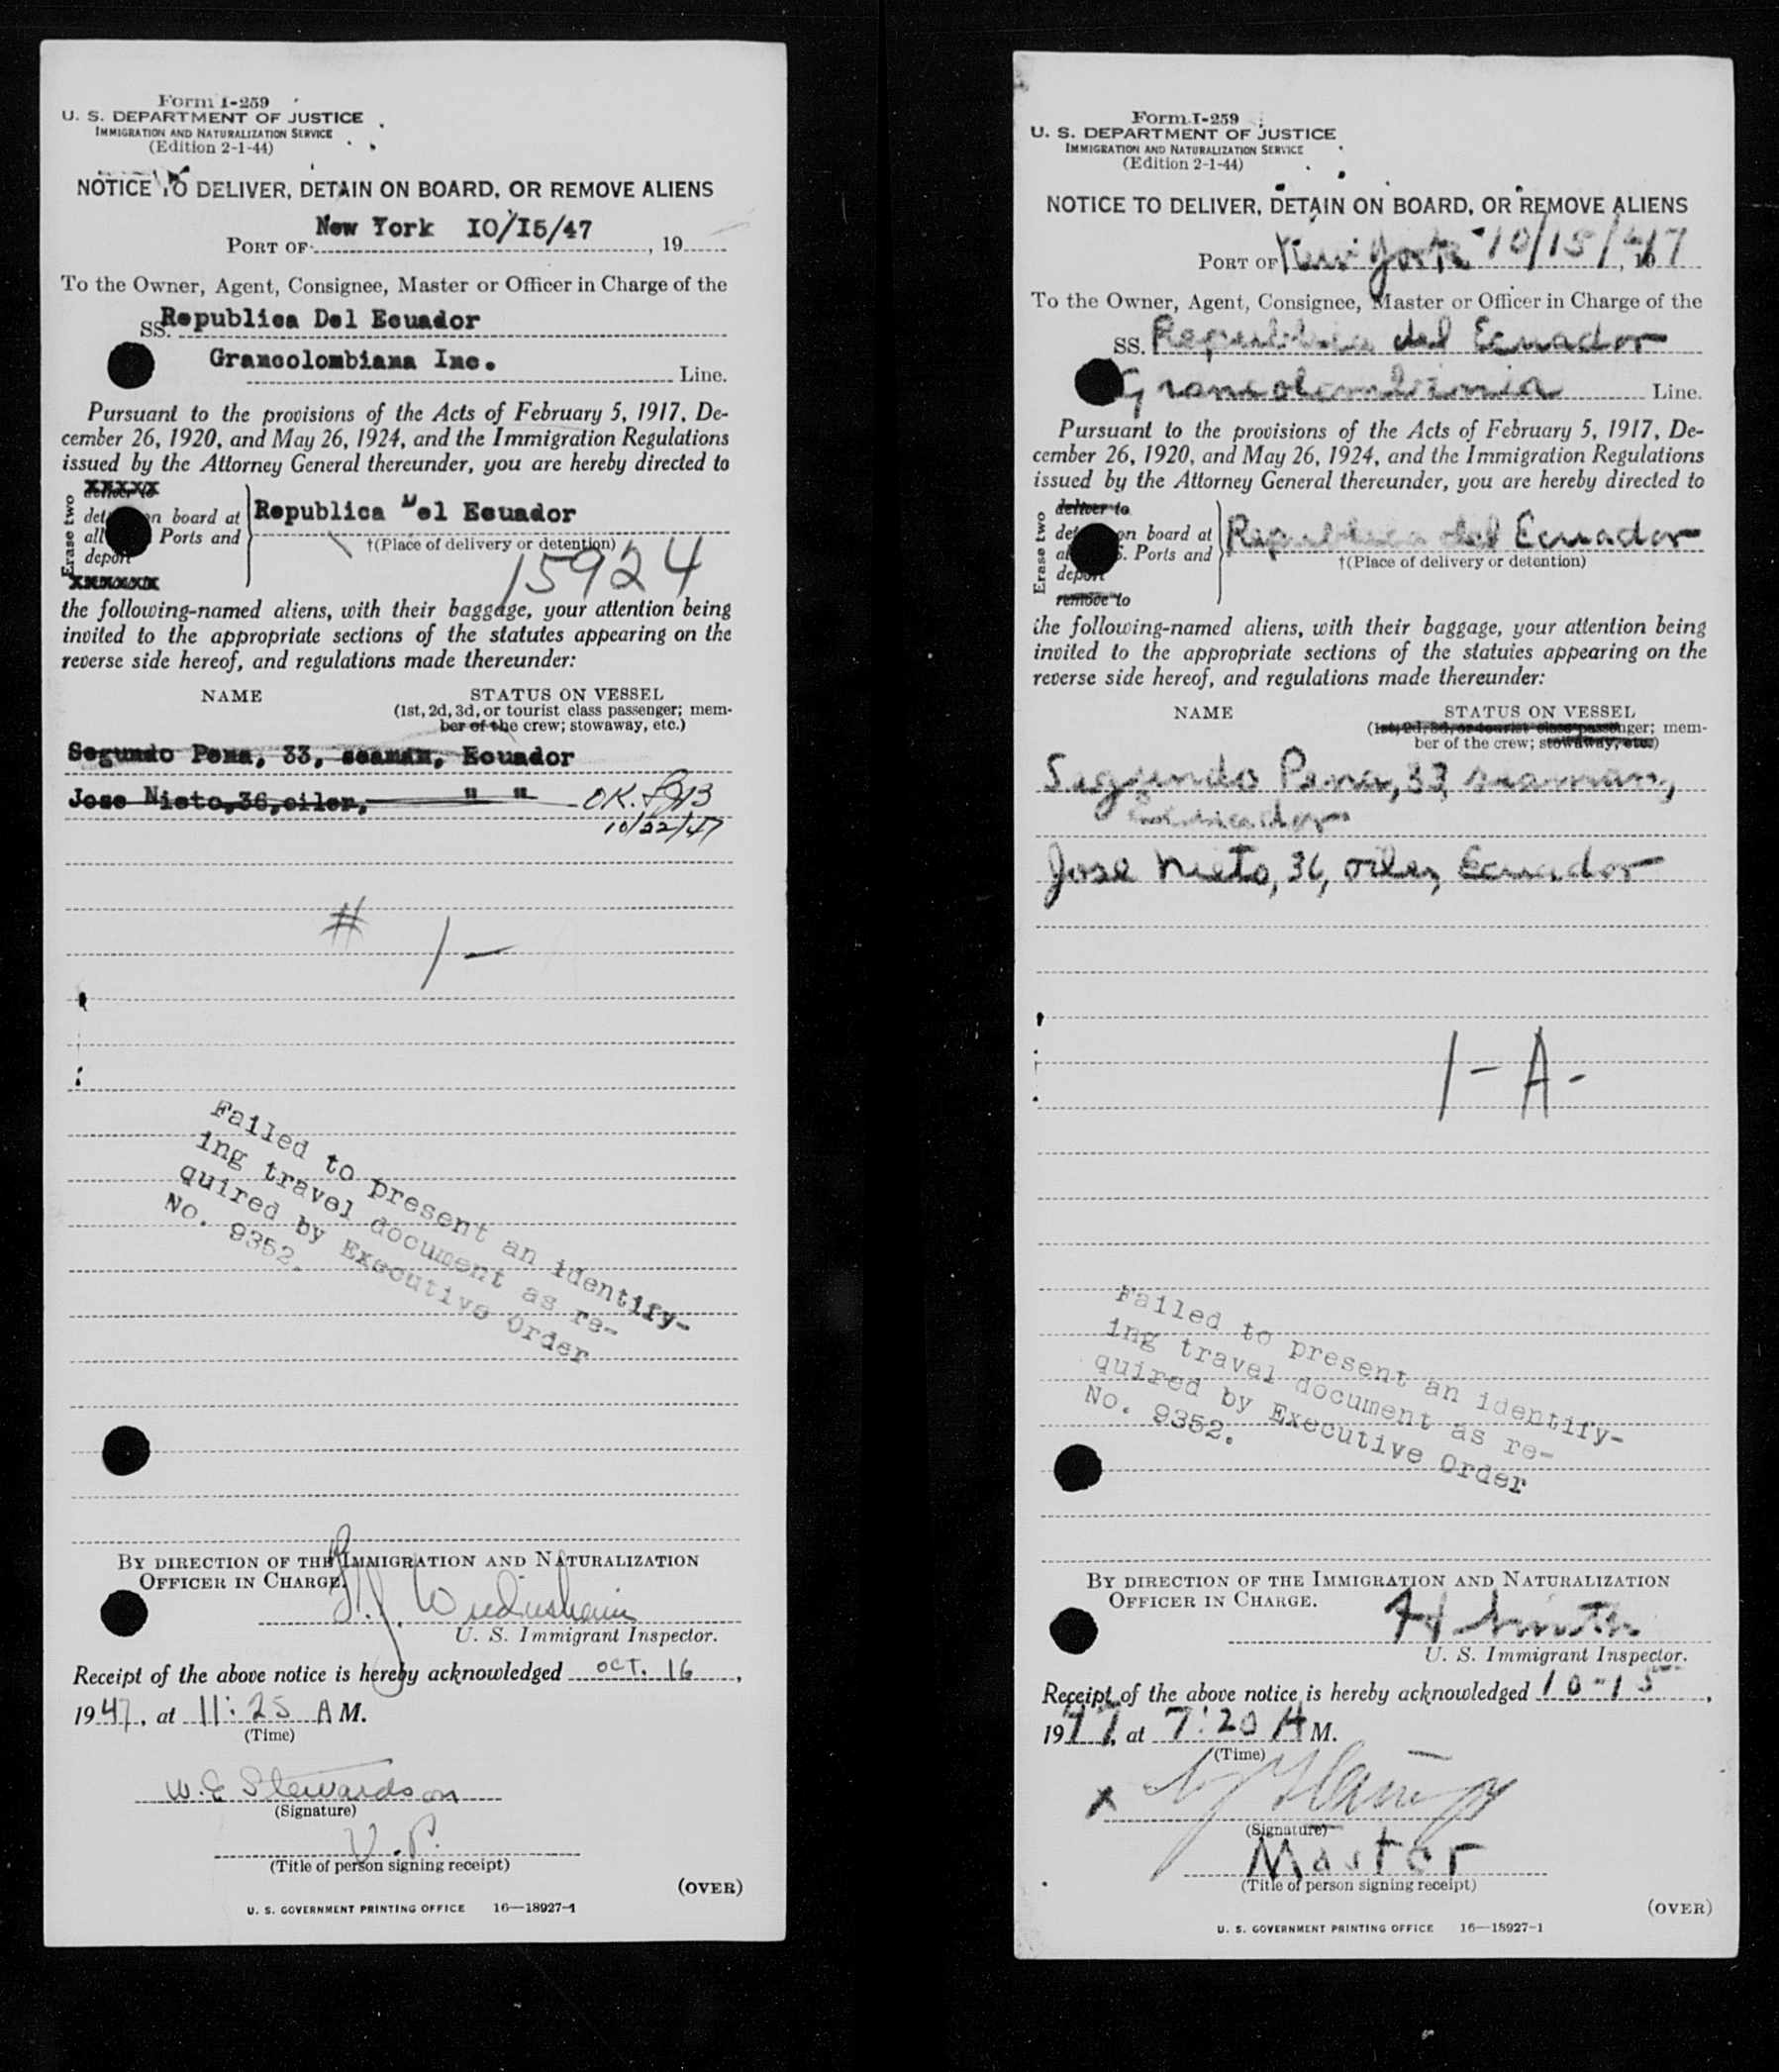 Form I-259
U. S. DEPARTMENT OF JUSTICE
IMMIGRATION AND NATURALIZATION SERVICE
(Edition 2-1-44)
NOTICE TO DELIVER, DETAIN ON BOARD, OR REMOVE ALIENS
New York 10/15/47
PORT OF , 19
To the Owner, Agent, Consignee, Master or Officer in Charge of the
SS. Republica Del Ecuador
Grancolombiana Inc. Line.
Pursuant to the provisions of the Acts of February 5, 1917, De-
cember 26, 1920, and May 26, 1924, and the Immigration Regulations
issued by the Attorney General thereunder, you are hereby directed to
Erase two
deliver to
on board at
all Ports and
deport
Republica Del Ecuador
†(Place of delivery or detention)
15924
the following-named aliens, with their baggage, your attention being
invited to the appropriate sections of the statutes appearing on the
reverse side hereof, and regulations made thereunder:
NAME STATUS ON VESSEL
(1st, 2d, 3d, or tourist class passenger; mem-
ber of the crew; stowaway, etc.)
Segundo Pena, 33, seaman, Ecuador
Jose Nieto, 36, oiler, " " OK.
10/22/47
# 1 -
Failed to present an identify-
ing travel document as re-
quired by Executive Order
No. 9352.
BY DIRECTION OF THE IMMIGRATION AND NATURALIZATION
OFFICER IN CHARGE.
U. S. Immigrant Inspector.
Receipt of the above notice is hereby acknowledged OCT. 16,
1947, at 11:25 A M.
(Time)
W. E Stewardson
(Signature)
V. P.
(Title of person signing receipt)
(OVER)
U. S. GOVERNMENT PRINTING OFFICE 16—18927-1
Form I-259
U. S. DEPARTMENT OF JUSTICE
IMMIGRATION AND NATURALIZATION SERVICE
(Edition 2-1-44)
NOTICE TO DELIVER, DETAIN ON BOARD, OR REMOVE ALIENS
PORT OF New York 10/15/47, 19
To the Owner, Agent, Consignee, Master or Officer in Charge of the
SS. Republica del Ecuador
Line.
Pursuant to the provisions of the Acts of February 5, 1917, De-
cember 26, 1920, and May 26, 1924, and the Immigration Regulations
issued by the Attorney General thereunder, you are hereby directed to
Erase two
deliver to
on board at
S. Ports and
deport
remove to
Republica del Ecuador
†(Place of delivery or detention)
the following-named aliens, with their baggage, your attention being
invited to the appropriate sections of the statutes appearing on the
reverse side hereof, and regulations made thereunder:
NAME STATUS ON VESSEL
(1st, 2d, 3d, or tourist class passenger; mem-
ber of the crew; stowaway, etc.)
Segundo Pena, 33, seaman,
Ecuador
Jose Nieto, 36, oiler, Ecuador
1 - A -
Failed to present an identify-
ing travel document as re-
quired by Executive Order
No. 9352.
BY DIRECTION OF THE IMMIGRATION AND NATURALIZATION
OFFICER IN CHARGE.
U. S. Immigrant Inspector.
Receipt of the above notice is hereby acknowledged 10-15,
1947, at 7:20 A M.
(Time)
X
(Signature)
Master
(Title of person signing receipt)
(OVER)
U. S. GOVERNMENT PRINTING OFFICE 16—18927-1